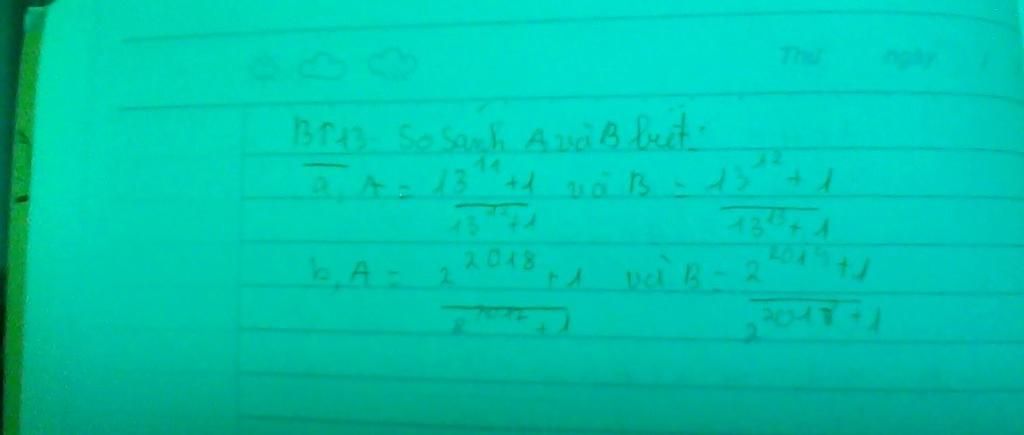 Thứ ngày /
BT13: So sánh A và B biết:
a, A = 13^11+1 / 13^12+1 và B = 13^12+1 / 13^13+1
b, A = 2^2018+1 / 2^2017+1 và B = 2^2019+1 / 2^2018+1